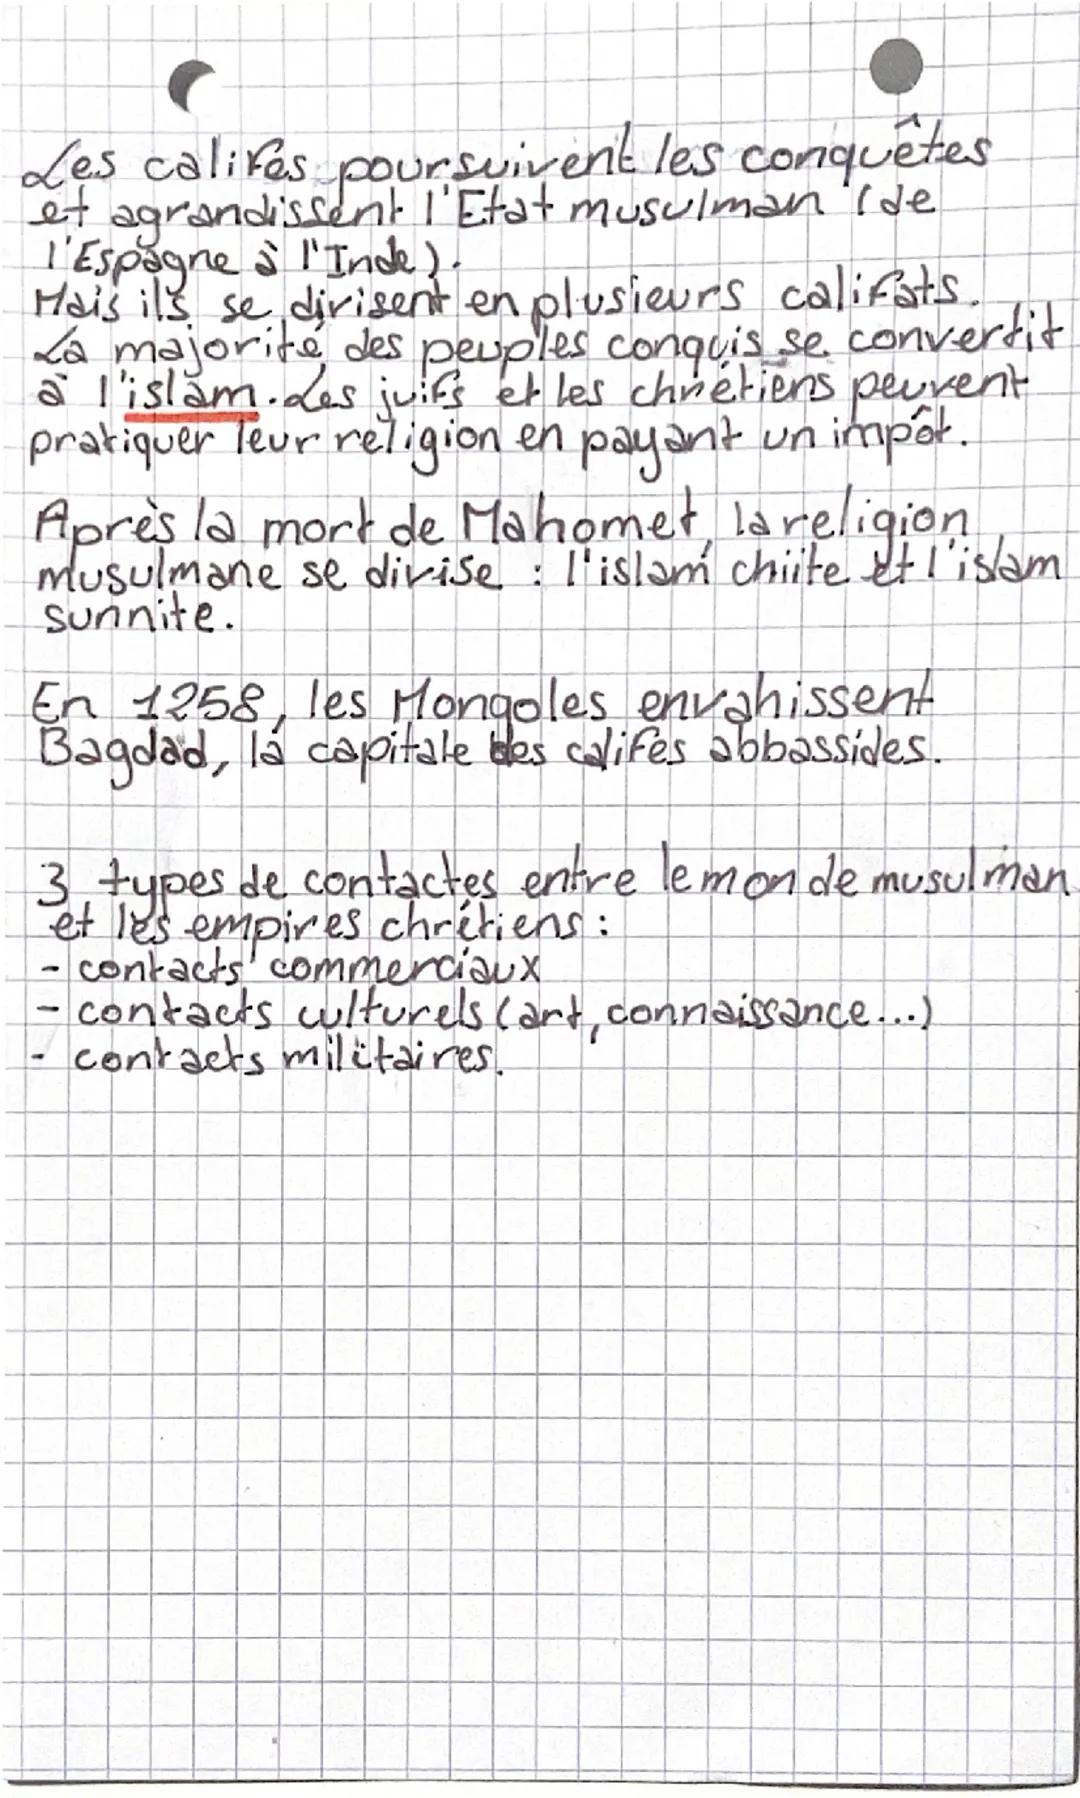 Les califes poursuivent les conquêtes
et agrandissent l'Etat musulman (de
l'Espagne à l'Inde).
Mais ils se divisent en plusieurs califats.
La majorité des peuples conquis se convertit
à l'islam. Les juifs et les chrétiens peuvent
pratiquer leur religion en payant un impôt.
Après la mort de Mahomet, la religion
musulmane se divise : l'islam chiite et l'islam
sunnite.
En 1258, les Mongoles envahissent
Bagdad, la capitale des califes abbassides.
3 types de contactes entre le monde musulman
et les empires chrétiens :
- contacts commerciaux
- contacts culturels (art, connaissance...)
- contacts militaires.